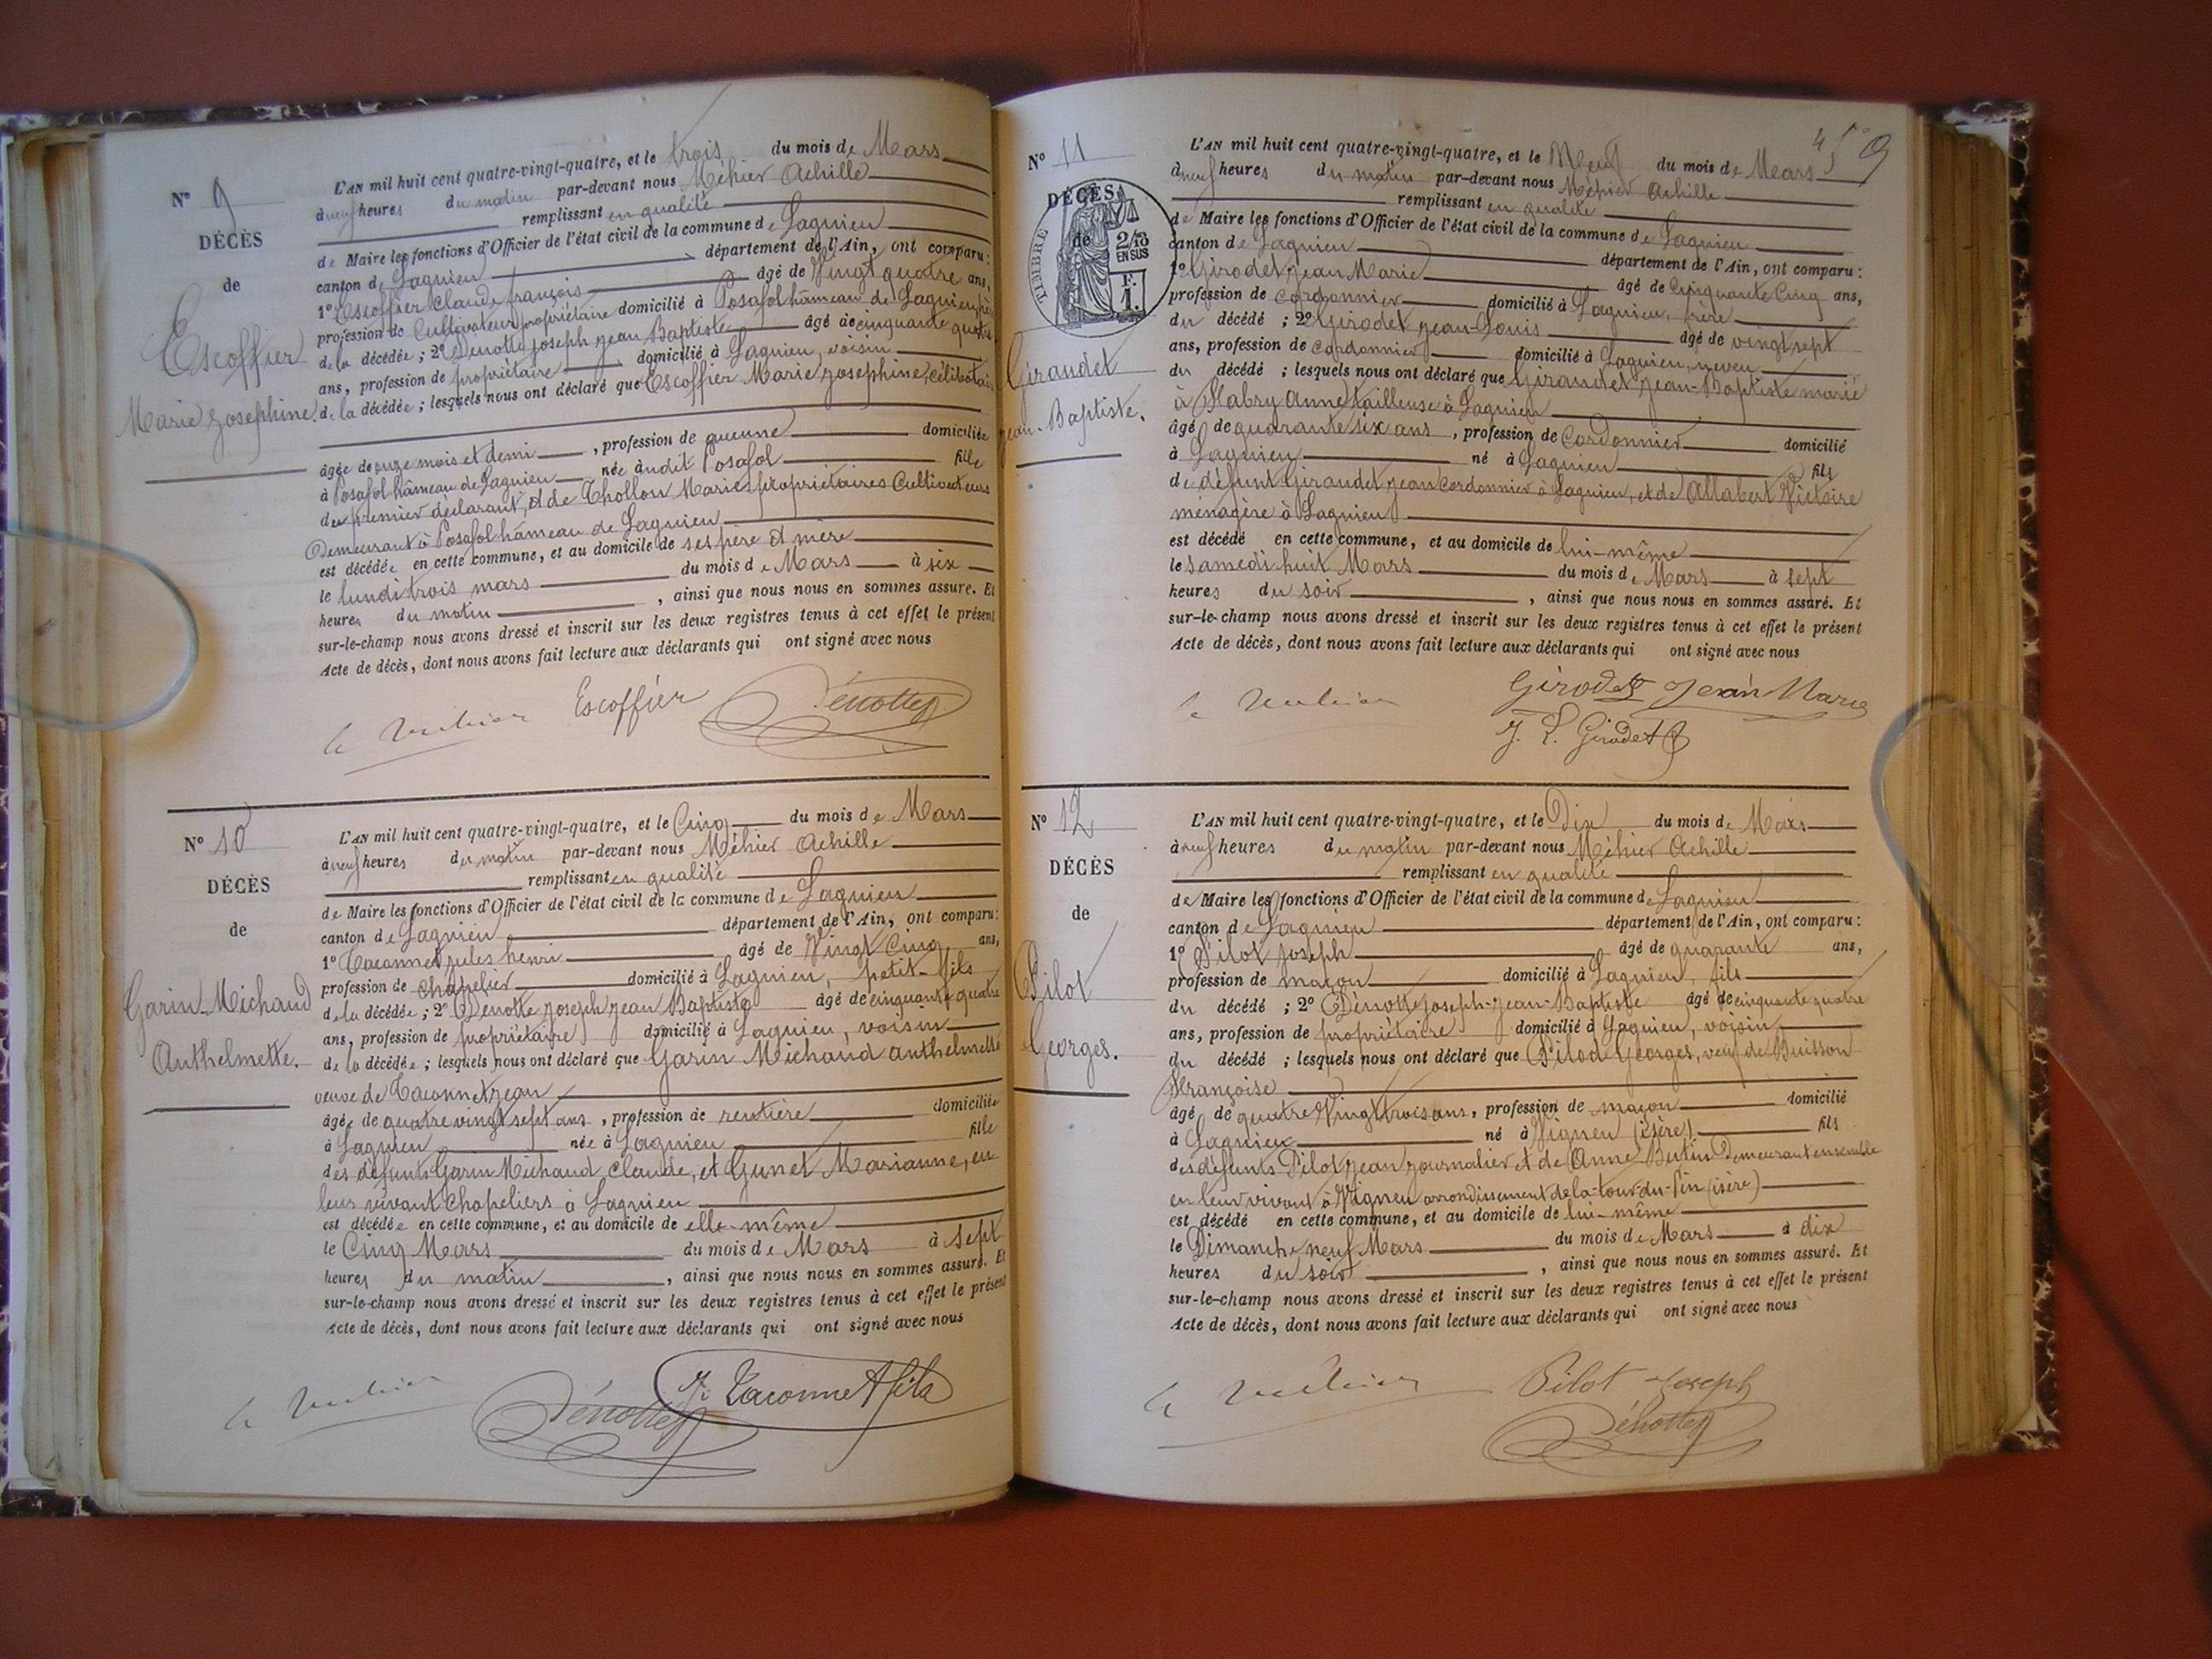 N° 9
DÉCÈS
de
Escoffier
Marie Josephine.
L'AN mil huit cent quatre-vingt-quatre, et le trois du mois de Mars
à neuf heures du matin par-devant nous Méhier Achille
remplissant en qualité
de Maire les fonctions d'Officier de l'état civil de la commune de Lagnieu
canton de Lagnieu département de l'Ain, ont comparu :
1° Escoffier Claude françois âgé de Vingt quatre ans,
profession de Cultivateur propriétaire domicilié à Posafol hâmeau de Lagnieu, père
de la décédée ; 2° Dénotte Joseph Jean Baptiste âgé de cinquante quatre
ans, profession de propriétaire domicilié à Lagnieu, voisin
de la décédée ; lesquels nous ont déclaré que Escoffier Marie Josephine, célibataire
âgée de onze mois et demi, profession de aucune domiciliée
à Posafol hâmeau de Lagnieu née àudit Posafol fille
du premier déclarant, et de Thollon Marie propriétaires Cultivateurs
Demeurant à Posafol hâmeau de Lagnieu
est décédée en cette commune, et au domicile de ses père et mère
le lundi trois mars du mois de Mars à six
heures du matin, ainsi que nous nous en sommes assuré. Et
sur-le-champ nous avons dressé et inscrit sur les deux registres tenus à cet effet le présent
Acte de décès, dont nous avons fait lecture aux déclarants qui ont signé avec nous
Escoffier Dénotte
N° 10
DÉCÈS
de
Garin Michaud
Anthelmette.
L'AN mil huit cent quatre-vingt-quatre, et le Cinq du mois de Mars
à neuf heures du matin par-devant nous Méhier Achille
remplissant en qualité
de Maire les fonctions d'Officier de l'état civil de la commune de Lagnieu
canton de Lagnieu département de l'Ain, ont comparu :
1° Taconnet jules henri âgé de Vingt Cinq ans,
profession de chapelier domicilié à Lagnieu, petit-fils
de la décédée ; 2° Dénotte Joseph Jean Baptiste âgé de cinquante quatre
ans, profession de propriétaire domicilié à Lagnieu, voisin
de la décédée ; lesquels nous ont déclaré que Garin Michaud anthelmette
veuve de Taconnet jean
âgée de quatre vingt sept ans, profession de rentière domiciliée
à Lagnieu née à Lagnieu fille
des défunts Garin Michaud Claude, et Gunet Marianne, en
leur vivant chapeliers à Lagnieu
est décédée en cette commune, et au domicile de elle-même
le Cinq Mars du mois de Mars à sept
heures du matin, ainsi que nous nous en sommes assuré. Et
sur-le-champ nous avons dressé et inscrit sur les deux registres tenus à cet effet le présent
Acte de décès, dont nous avons fait lecture aux déclarants qui ont signé avec nous
J. Taconnet fils
Dénotte
N° 11
DÉCÈS
de
TIMBRE
2/10
EN SUS
F.
1.
Giraudet
Jean-Baptiste.
L'AN mil huit cent quatre-vingt-quatre, et le Neuf du mois de Mars
à neuf heures du matin par-devant nous Méhier Achille
remplissant en qualité
de Maire les fonctions d'Officier de l'état civil de la commune de Lagnieu
canton de Lagnieu département de l'Ain, ont comparu :
1° Girodet Jean Marie âgé de Cinquante Cinq ans,
profession de Cordonnier domicilié à Lagnieu, frère
du décédé ; 2° Girodet Jean-Louis âgé de vingt sept
ans, profession de Cordonnier domicilié à Lagnieu, neveu
du décédé ; lesquels nous ont déclaré que Giraudet Jean-Baptiste marié
à Flabry Anne tailleuse à Lagnieu
âgé de quarante six ans, profession de Cordonnier domicilié
à Lagnieu né à Lagnieu fils
de défunt Giraudet jean Cordonnier à Lagnieu, et de Allabert Victoire
ménagère à Lagnieu
est décédé en cette commune, et au domicile de lui-même
le samedi huit Mars du mois de Mars à sept
heures du soir, ainsi que nous nous en sommes assuré. Et
sur-le-champ nous avons dressé et inscrit sur les deux registres tenus à cet effet le présent
Acte de décès, dont nous avons fait lecture aux déclarants qui ont signé avec nous
Girodet Jean Marie
J. L. Girodet
N° 12
DÉCÈS
de
Pilot
Georges.
L'AN mil huit cent quatre-vingt-quatre, et le Dix du mois de Mars
à neuf heures du matin par-devant nous Méhier Achille
remplissant en qualité
de Maire les fonctions d'Officier de l'état civil de la commune de Lagnieu
canton de Lagnieu département de l'Ain, ont comparu :
1° Pilot Joseph âgé de quarante ans,
profession de maçon domicilié à Lagnieu, fils
du décédé ; 2° Dénotte Joseph-Jean-Baptiste âgé de cinquante quatre
ans, profession de propriétaire domicilié à Lagnieu, voisin
du décédé ; lesquels nous ont déclaré que Pilod Georges, veuf de Buisson
Françoise
âgé de quatre Vingt trois ans, profession de maçon domicilié
à Lagnieu né à Vigneu (isère) fils
des défunts Pilot Jean journalier et de Anne Butin Demeurant ensemble
en leur vivant à Vigneu arrondissement de la-tour-du-Pin (isère)
est décédé en cette commune, et au domicile de lui-même
le Dimanche neuf Mars du mois de Mars à dix
heures du soir, ainsi que nous nous en sommes assuré. Et
sur-le-champ nous avons dressé et inscrit sur les deux registres tenus à cet effet le présent
Acte de décès, dont nous avons fait lecture aux déclarants qui ont signé avec nous
Pilot Joseph
Dénotte